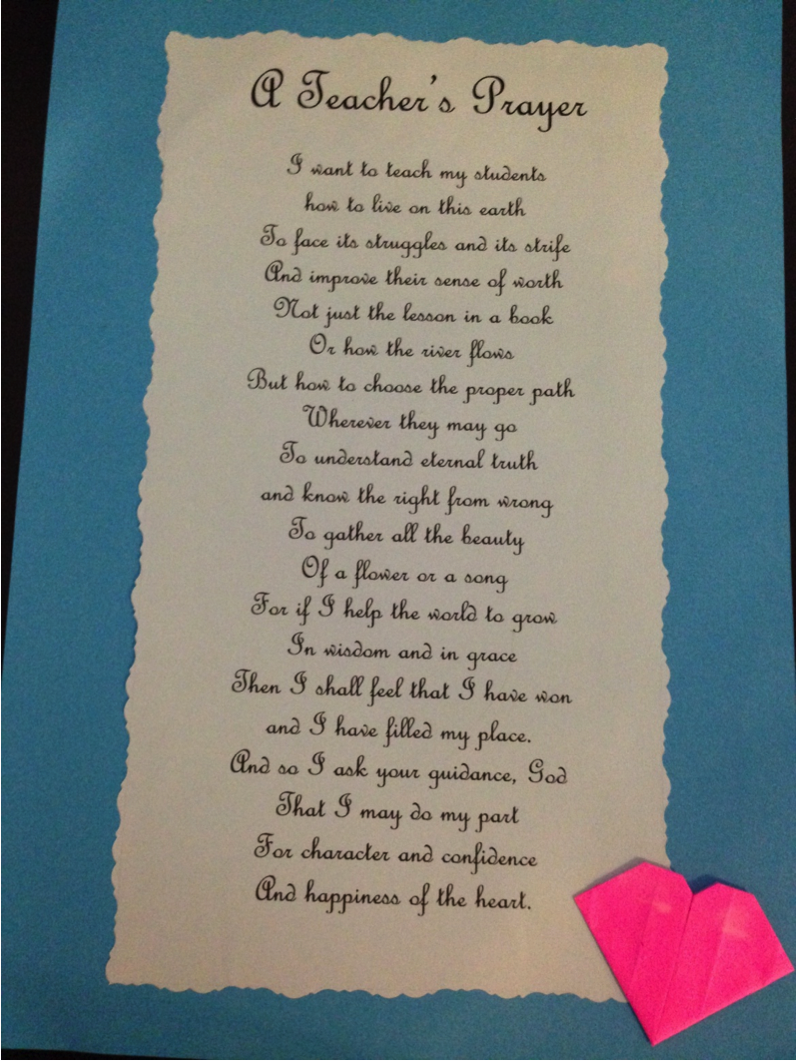 A Teacher's Prayer
I want to teach my students
how to live on this earth
To face its struggles and its strife
And improve their sense of worth
Not just the lesson in a book
Or how the river flows
But how to choose the proper path
Wherever they may go
To understand eternal truth
and know the right from wrong
To gather all the beauty
Of a flower or a song
For if I help the world to grow
In wisdom and in grace
Then I shall feel that I have won
and I have filled my place.
And so I ask your guidance, God
That I may do my part
For character and confidence
And happiness of the heart.